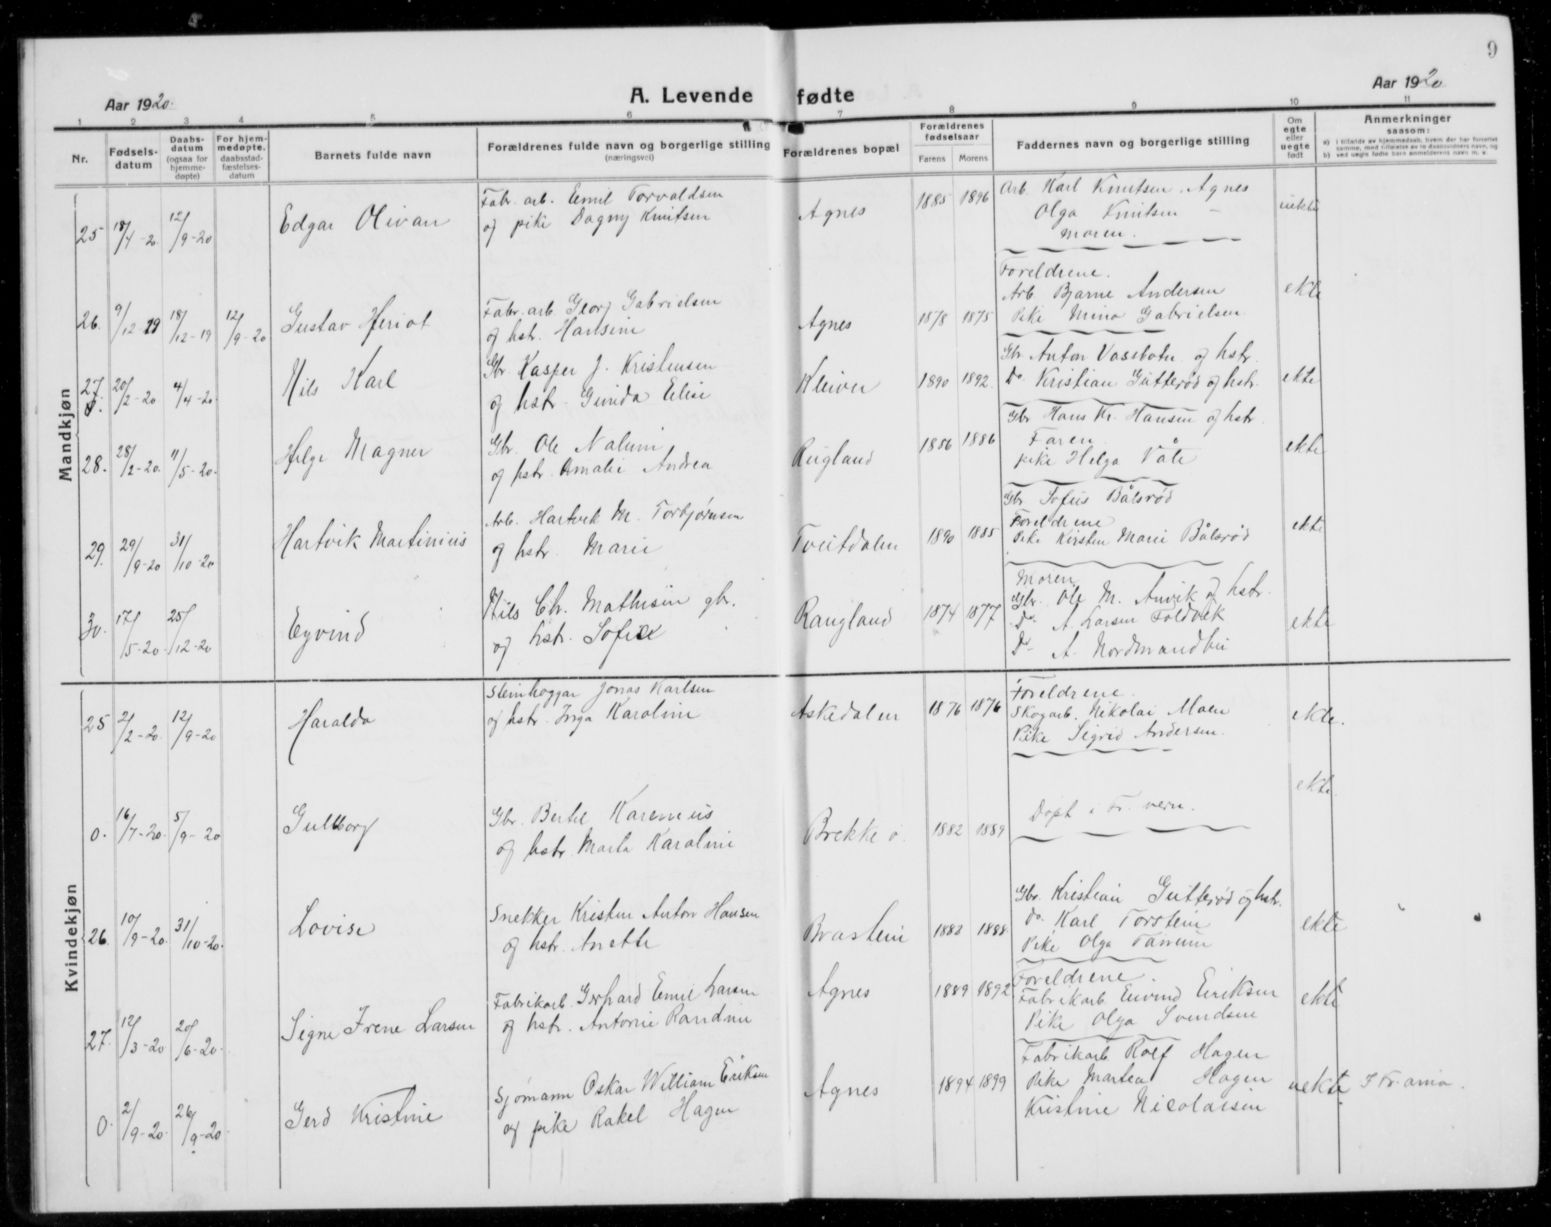 9
Aar 1920.
A. Levende fødte
Aar 1920
1 2 3 4 5 6 7 8 9 10 11
Nr.
Fødsels-
datum
Daabs-
datum
(ogsaa for
hjemme-
døpte)
For hjem-
medøpte.
daabsstad-
fæstelses-
datum
Barnets fulde navn
Forældrenes fulde navn og borgerlige stilling
(næringsvei)
Forældrenes bopæl
Forældrenes
fødselsaar
Farens Morens
Faddernes navn og borgerlige stilling
Om
egte
eller
uegte
født
Anmerkninger
saasom:
Mandkjøn
25 18/4-20 12/9-20 Edgar Olivan
Fabr. arb. Emil Torvaldsen
og pike Dagny Knutsen
Agnes 1885 1896
Arb. Karl Knutsen, Agnes
Olga Knutsen -
Moren.
uekte
26. 9/12 19 18/12-19 12/9-20 Gustav Heriot
Fabr. arb. Georg Gabrielsen
og hstr. Hansine
Agnes 1878 1875
Foreldrene.
Arb. Bjarne Andersen
Pike Mina Gabrielsen
ekte
27. 20/2-20 4/4-20. Nils Karl
Gbr. Kasper J. Kristensen
og hstr. Gunda Elise
Kleiver 1890 1892
Gbr. Anton Vassbotn og hstr.
Do. Kristian Gutterød og hstr.
ekte
28. 28/2-20. 11/5-20. Helge Magner
Gbr. Ole Nalum
og hstr. Amalie Andrea
Rugland 1886 1886
Gbr. Hans Kr. Hansen og hstr.
Faren.
pike Helga Våle
ekte
29. 29/9-20 31/10-20 Hartvik Martinius
Arb. Hartvik M. Torbjørnsen
og hstr. Marie
Tveitdalen 1890 1885
Gbr. Sofus Bålsrød
Foreldrene
Pike Kirsten Marie Bålsrød
ekte
30. 17/5-20 25/12-20 Eyvind
Nils Chr. Mathisen gbr.
og hstr. Sofie
Raugland 1874 1877
Moren
Gbr. Ole M. Anvik og hstr.
Do. A. Larsen Foldvik
Do A. Nordmandbu
ekte
Kvindekjøn
25 2/2-20. 12/9-20 Haralda
Steinhoggar Jonas Karlsen
og hstr. Inga Karoline
Askedalen 1876 1876
Foreldrene.
Skogarb. Nikolai Moen
Pike Sigrid Andersen.
ekte.
0. 16/7-20. 5/9-20 Gulborg
Gbr. Bertel Karenius
og hstr. Marta Karoline
Brekke ø. 1882 1889
Døpt i Fr. vern.
ekte.
26. 10/9-20. 31/10-20. Lovise
Snekker Kristen Anton Hansen
og hstr. Anette
Brastein 1882 1888
Gbr. Kristian Gutterød og hstr.
Do. Karl Torstein
Pike Olga Tanum
ekte
27. 12/3-20 20/6-20. Signe Irene Larsen
Fabrikarb. Gerhard Emil Larsen
og hstr. Antonie Randine
Agnes 1889 1892
Foreldrene.
Fabrikarb. Eivind Eriksen
Pike Olga Svendsen
ekte
0. 2/9-20. 26/9-20. Gerd Kristine
Sjømann Oskar William Eriksen
og pike Rakel Hagen
Agnes 1894 1899
Fabrikarb Rolf Hagen
Pike Martea Hagen
Kristine Nicolaisen
uekte